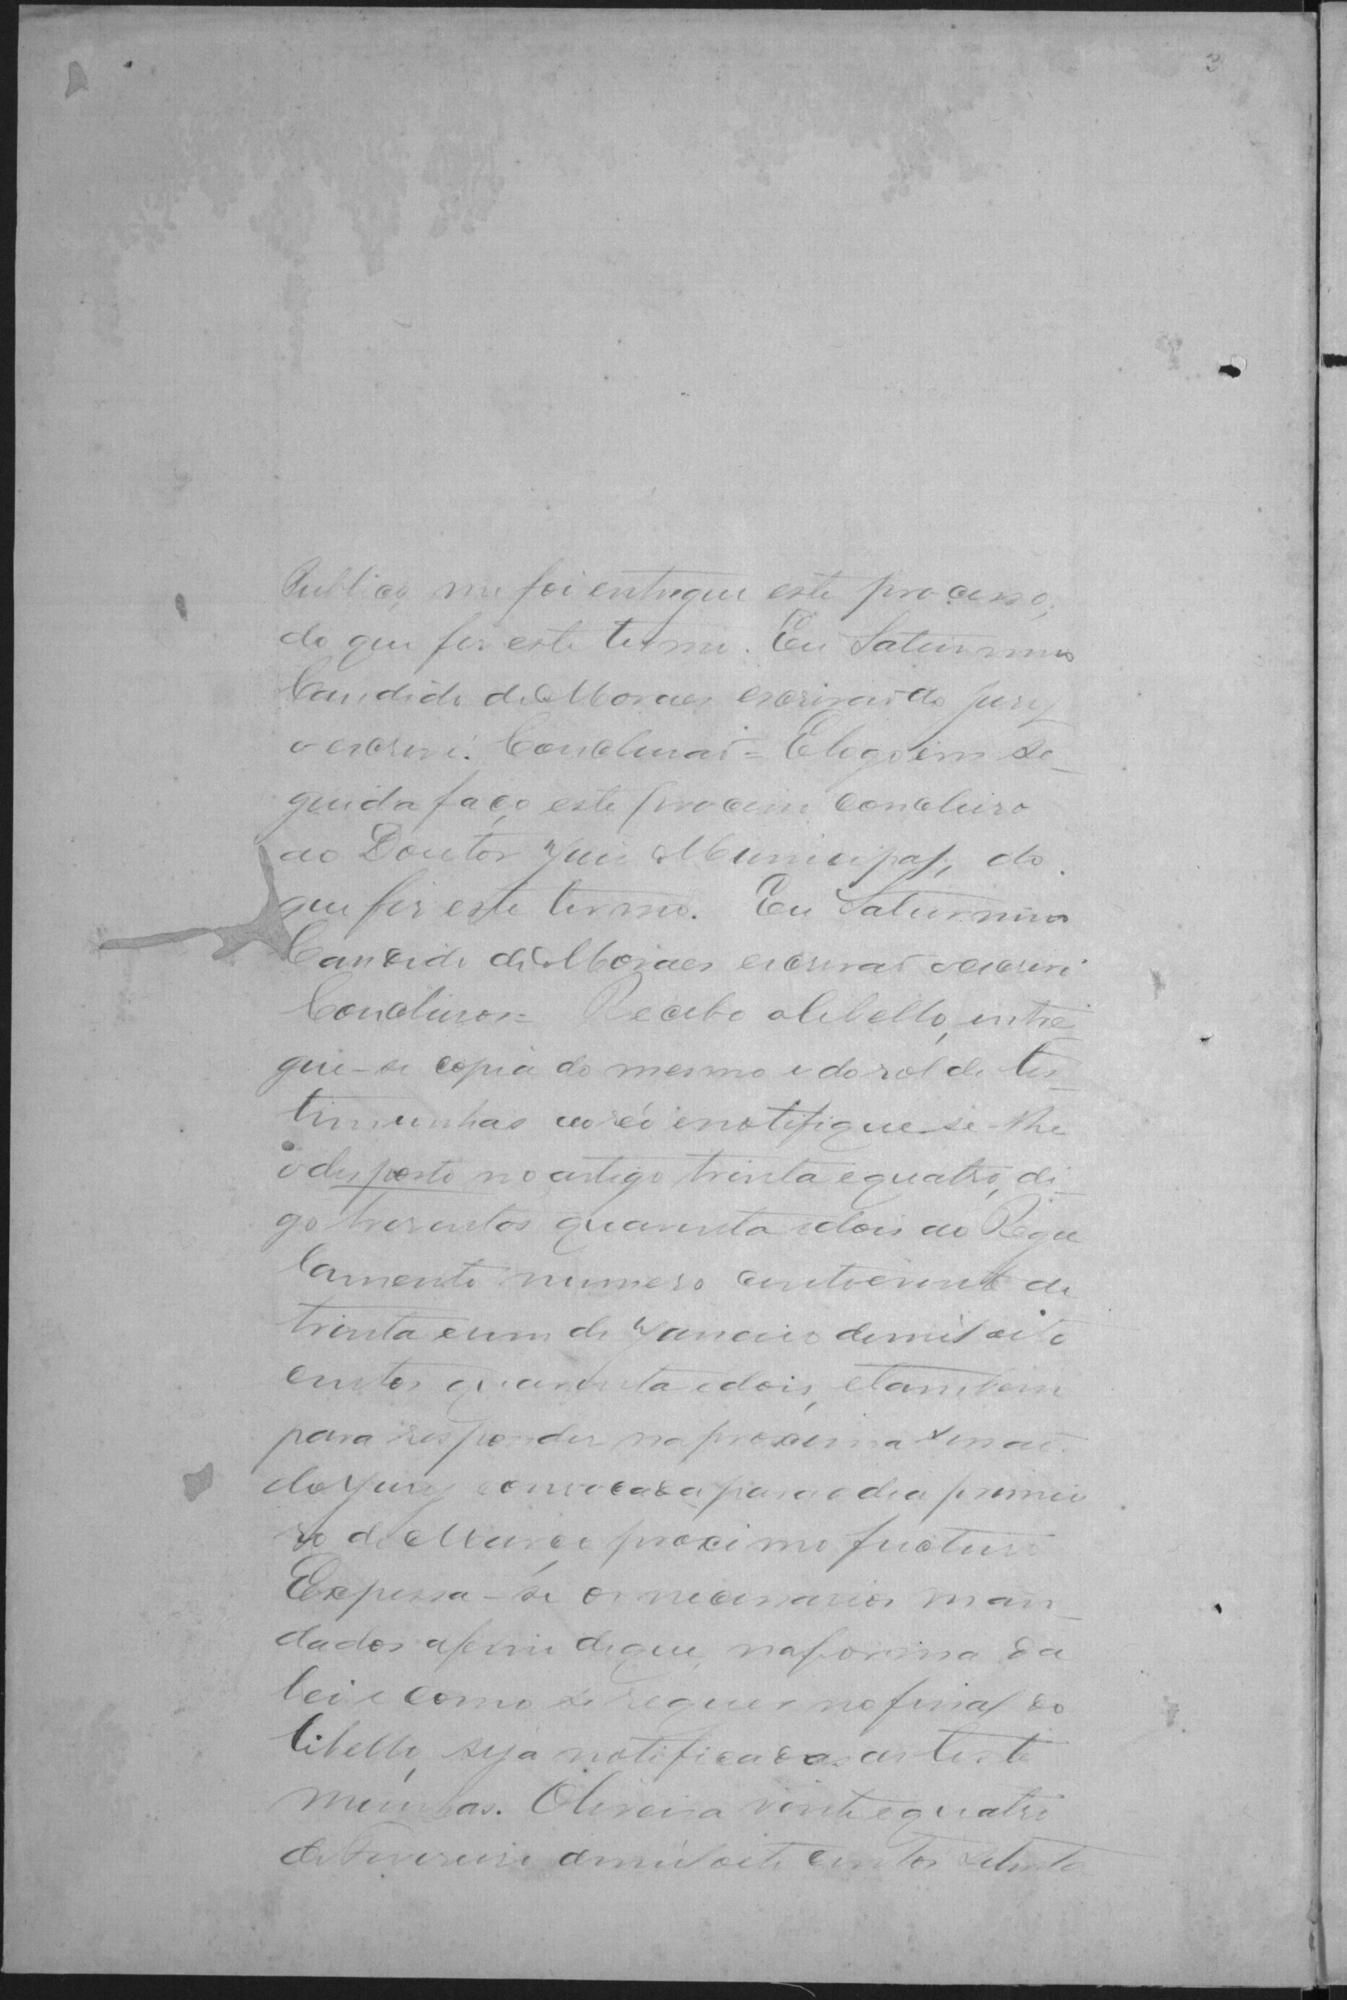 3
Publico, me foi entregue este processo,
do que fiz este termo. Eu Saturnino
Candido de Moraes escrivaõ do Jury
o escrevi. Concluzaõ = E logo em se_
guida faço este processo concluzo
ao Doutor Juis Municipal, do
que fiz este termo. Eu Saturnino
Candido de Moraes escrivaõ o escrevi
Concluzos = Recebo o libello, entre
gue-se copia do mesmo e do rol de tes_
timunhas ao réo e notifique-se-lhe
o disposto no artigo trinta e quatro, di_
go trezentos quarenta e dois do Regu
lamento numero cento e vinte de
trinta e um de Janeiro de mil oito
centos quarenta e dois, e tambem
para responder na proxima sessaõ
do Jury convocada para o dia primei
ro de Março proximo fucturo
Expessa-se os necessarios man_
dados afim de que, na forma da
lei e como se requer no final do
libello, seja notificadas as teste
munhas. Oliveira vinte e quatro
de Fevereiro de mil oito centos setenta